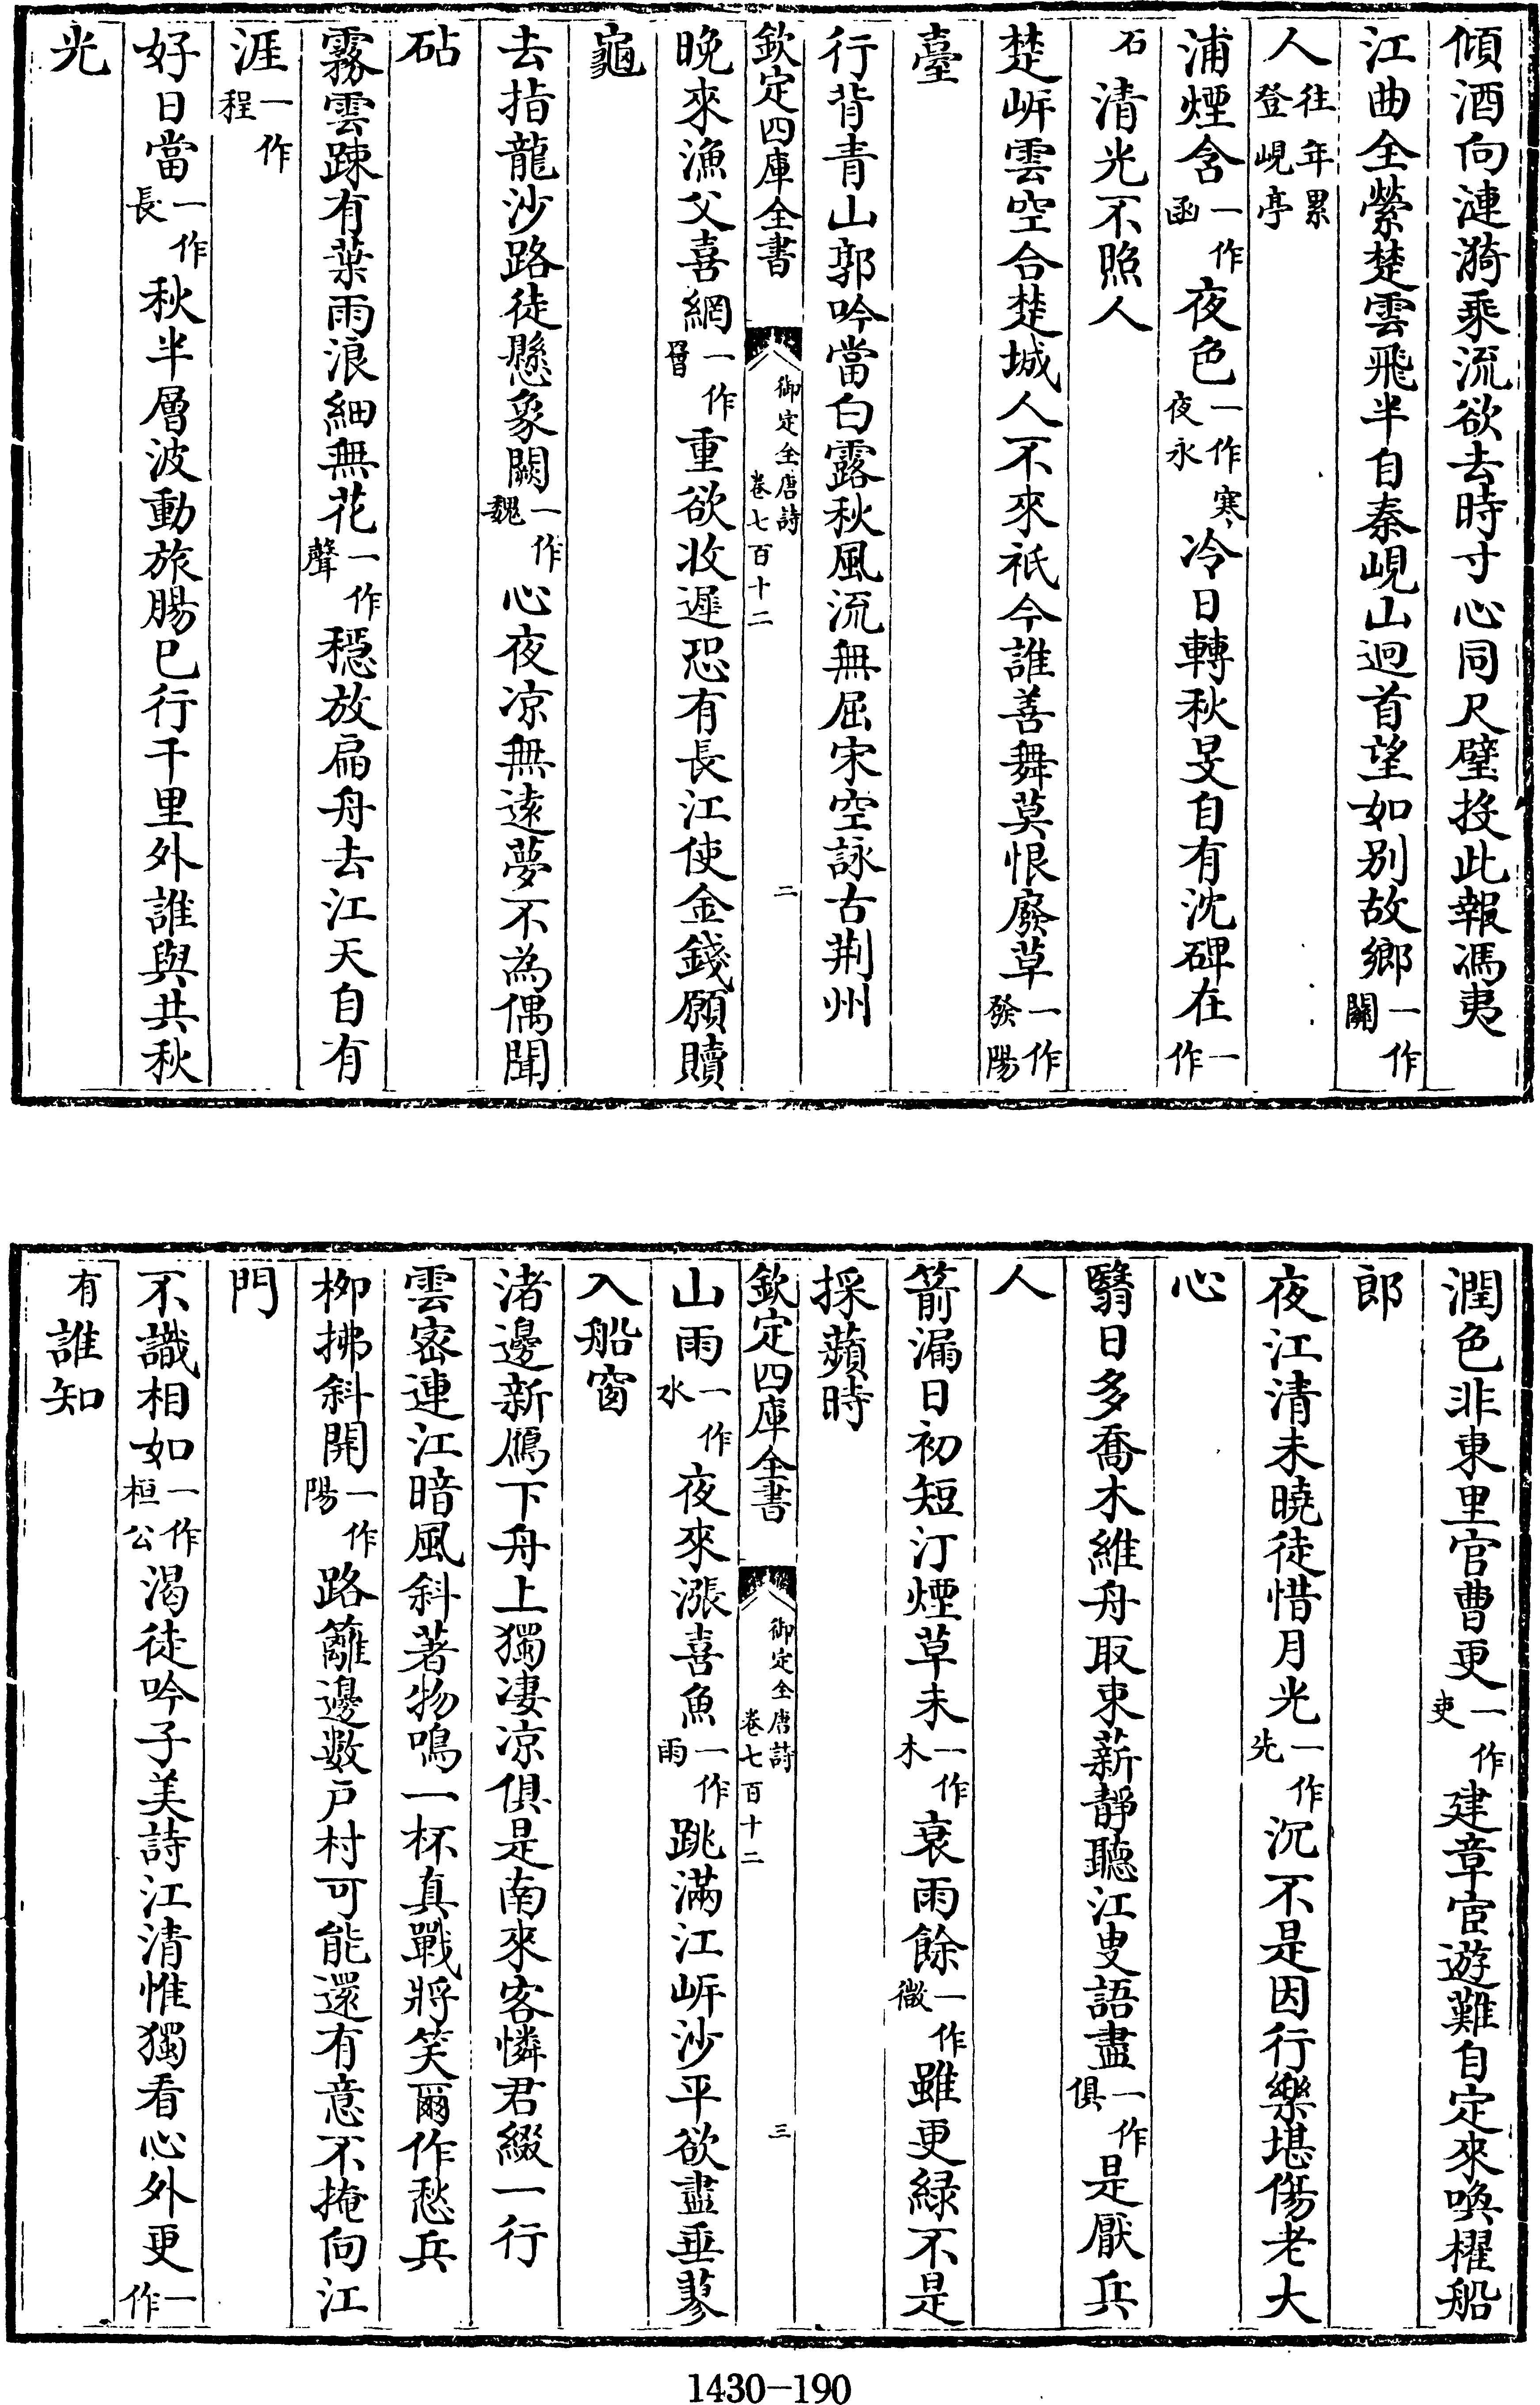 傾酒向漣漪乘流欲去時寸心同尺璧投此報馮夷
江曲全縈楚雲飛半自秦峴山迴首望如别故鄉一作關
人往年累登峴亭
浦煙含一作函夜色一作夜永寒冷日轉秋旻自有沈碑在一作
石清光不照人
楚岍雲空合楚城人不來祇今誰善舞莫恨廢草一作發陽
臺
行背青山郭吟當白露秋風流無屈宋空詠古荆州
欽定四庫全書 御定全唐詩卷七百十二 二
晚來漁父喜網一作罾重欲收遲恐有長江使金錢願贖
龜
去指龍沙路徒懸象闕一作魏心夜凉無遠夢不為偶聞
砧
霧雲踈有葉雨浪細無花一作聲穩放扁舟去江天自有
涯一作程
好日當一作長秋半層波動旅腸已行千里外誰與共秋
光
潤色非東里官曹更一作吏建章宦遊難自定來喚櫂船
郎
夜江清未曉徒惜月光一作先沉不是因行樂堪傷老大
心
翳日多喬木維舟取束薪靜聽江叟語盡一作俱是厭兵
人
箭漏日初短汀煙草未一作木衰雨餘一作微雖更緑不是
採蘋時
欽定四庫全書 御定全唐詩卷七百十二 三
山雨一作水夜來漲喜魚一作雨跳滿江岍沙平欲盡垂蓼
入船窗
渚邊新鴈下舟上獨凄凉俱是南來客憐君綴一行
雲密連江暗風斜著物鳴一杯真戰將笑爾作愁兵
栁拂斜開一作陽路籬邊數户村可能還有意不掩向江
門
不識相如一作桓公渴徒吟子美詩江清惟獨看心外更一作
有誰知
1430-190